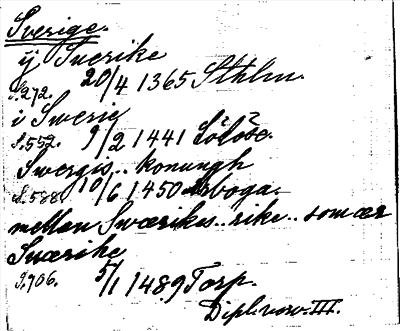 Sverige.
ÿ Suerike
S.272. 20/4 1365 Sthlm.
i Swerig
S.552. 9/2 1441 Lölöse.
Swergis.. konungh
S.588. 10/6 1450 Arboga.
mellan Swærikes.. rike.. som ær
Suærike
S.706. 5/1 1489 Torp.
Dipl. norv. III.